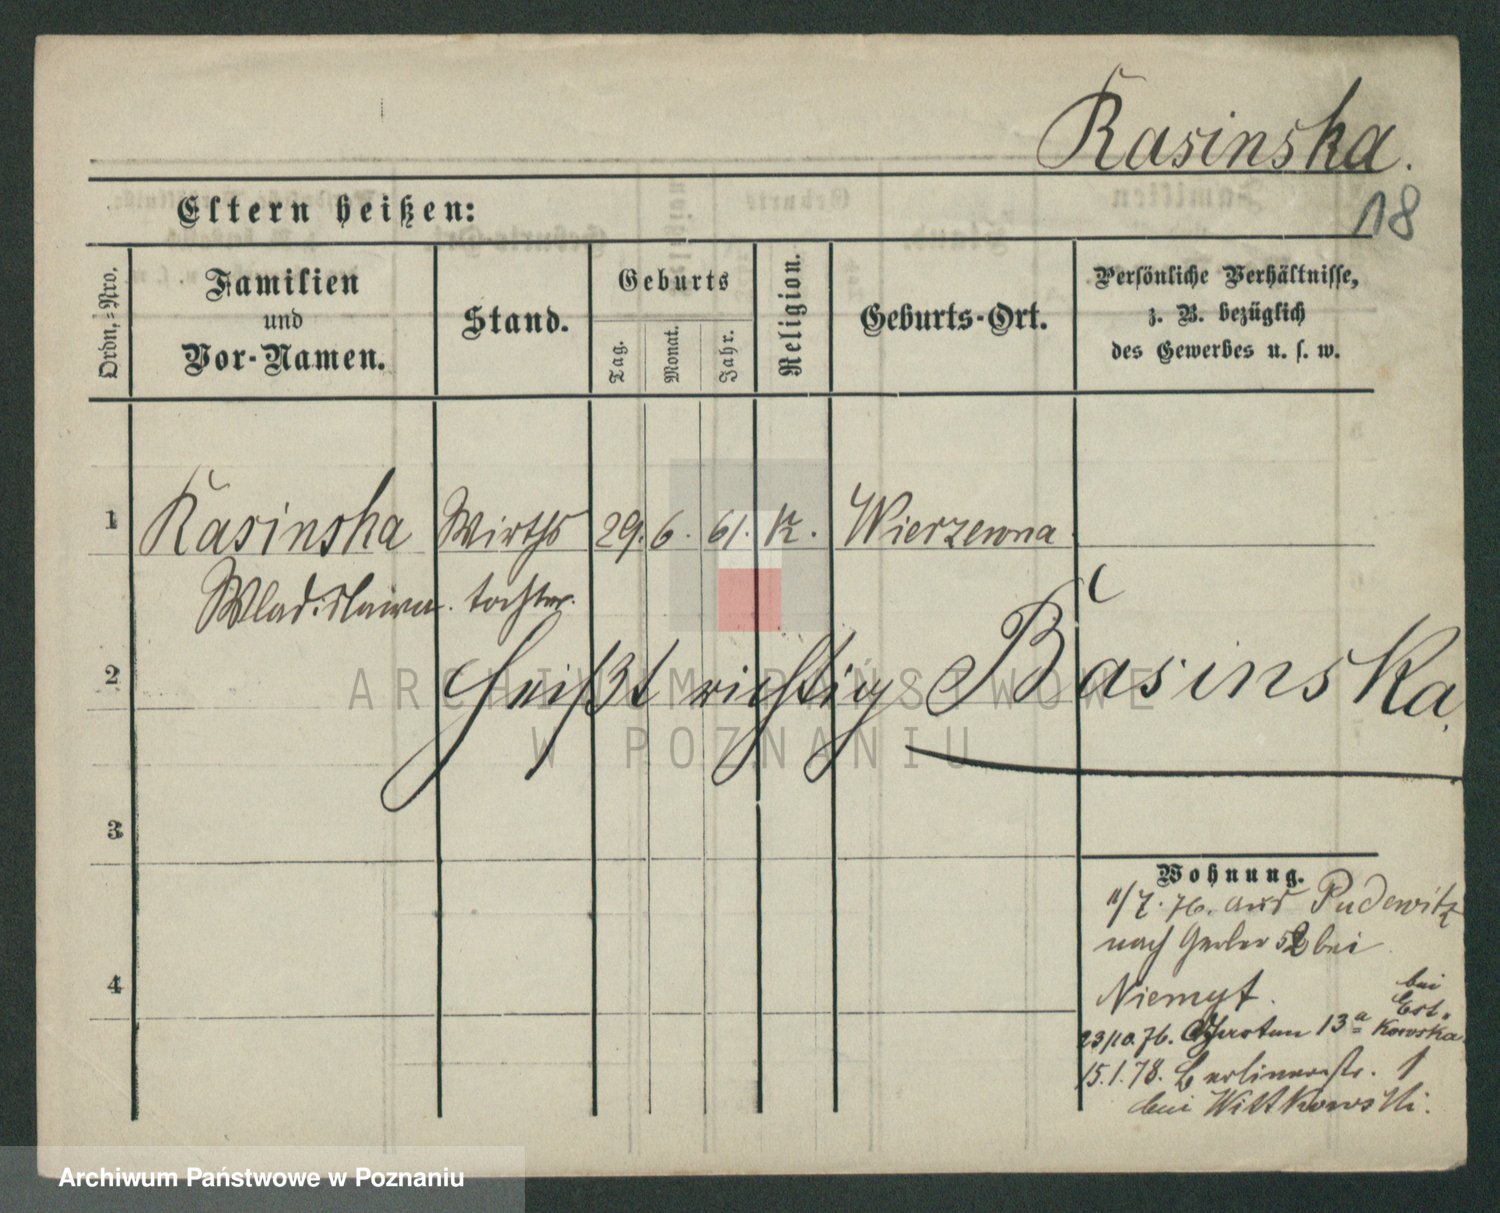 Rasinska.
18
Eltern heißen:
Ordn.=Nro.
Familien
und
Vor-Namen.
Stand.
Geburts
Tag.
Monat.
Jahr.
Religion.
Geburts-Ort.
Persönliche Verhältnisse,
z. B. bezüglich
des Gewerbes u. s. w.
1 Rasinska Wirths 29. 6. 61. K. Wierzewna
Wladislawa. tochter.
2 heißt richtig Basinska.
3
Wohnung.
11/7. 76. aus Pudewitz
nach Gerber 52 bei
4 Niemyt.
bei
23/10. 76. 13a Kowska
15.1.78. Berlinerstr. 1
bei Wittkowski.
ARCHIWUM PAŃSTWOWE
W POZNANIU
Archiwum Państwowe w Poznaniu